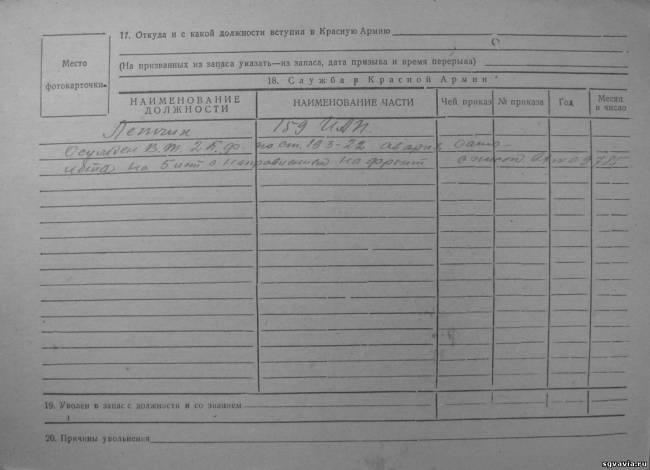 17. Откуда и с какой должности вступил в Красную Армию
Место
фотокарточки
(На призванных из запаса указать—из запаса, дата призыва и время перерыва)
18. Служба в Красной Армии
НАИМЕНОВАНИЕ ДОЛЖНОСТИ
НАИМЕНОВАНИЕ ЧАСТИ
Чей приказ
№ приказа
Год
Месяц
и число
Летчик 159 ИАП
Осужден В.Т. 2 по ст. 193-22 авария само-
лёта на 5 лет с направлением на фронт
19. Уволен в запас с должности и со званием
20. Причины увольнения
sgvavia.ru